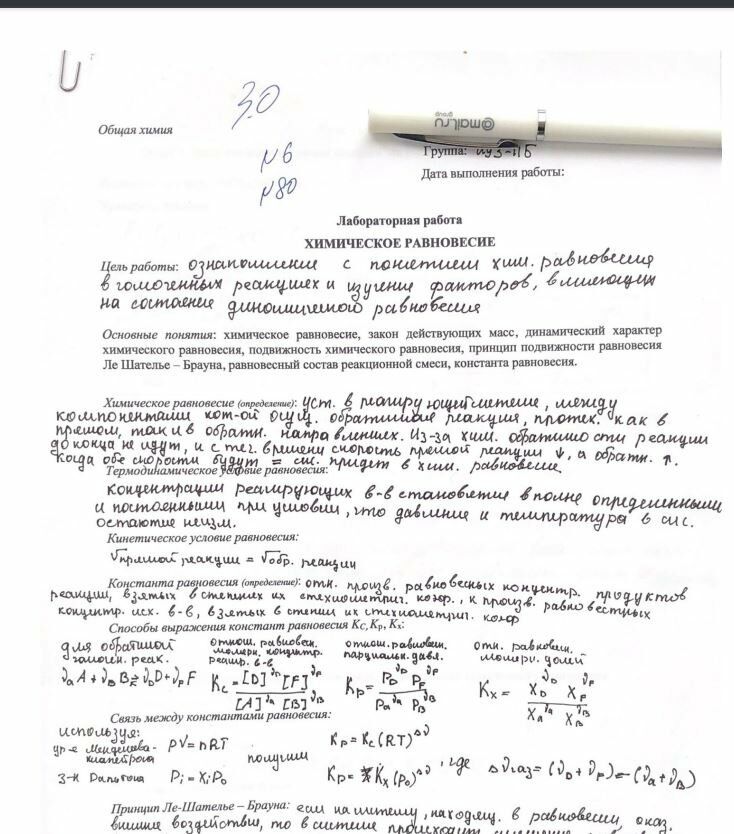 3.0
Общая химия
@mail.ru
group
№6
Группа:
№80
Дата выполнения работы:
Лабораторная работа
ХИМИЧЕСКОЕ РАВНОВЕСИЕ
Цель работы: ознакомление с понятием хим. равновесия
в гомогенных реакциях и изучение факторов, влияющих
на состояние динамического равновесия
Основные понятия: химическое равновесие, закон действующих масс, динамический характер
химического равновесия, подвижность химического равновесия, принцип подвижности равновесия
Ле Шателье – Брауна, равновесный состав реакционной смеси, константа равновесия.
Химическое равновесие (определение): уст. в реагирующей системе, между
компонентами кот-ой осущ. обратимая реакция, протек. как в
прямом, так и в обратн. направлениях. Из-за хим. обратимости реакции
до конца не идут, и с теч. времени скорость прямой реакции ↓, а обратн. ↑.
Когда обе скорости будут = сис. придет в хим. равновесие
Термодинамическое условие равновесия:
концентрации реагирующих в-в становятся вполне определенными
и постоянными при условии, что давление и температуры в сис.
остаются неизм.
Кинетическое условие равновесия:
Vпрямой реакции = Vобр. реакции
Константа равновесия (определение): отн. произв. равновесных концентр. продуктов
реакции, взятых в степенях их стехиометрич. коэф., к произв. равновестных
концентр. исх. в-в, взятых в степени их стехиометрич. коэф
Способы выражения констант равновесия Kc, Kp, Kx:
для обратимой гомоген. реак. отнош. равновесн. молярн. концентр. реагир. в-в отнош. равновесн. парциальн. давл. отн. равновесн. молярн. долей
νaA + νbB ⇄ νdD + νfF Kc = [D]^νD [F]^νF / [A]^νA [B]^νB Kp = PD^νD PF^νF / PA^νA PB^νB Kx = XD^νD XF^νF / XA^νA XB^νB
Связь между константами равновесия:
используя:
ур-е Менделеева-Клапейрона PV = nRT получим Kp = Kc(RT)^Δν
з-н Дальтона Pi = XiP0 Kp = Kx(P0)^Δν, где Δνгаз = (νD + νF) – (νA + νB)
Принцип Ле-Шателье – Брауна: если на систему, находящ. в равновесии, оказ.
внешние воздействие, то в системе происходит